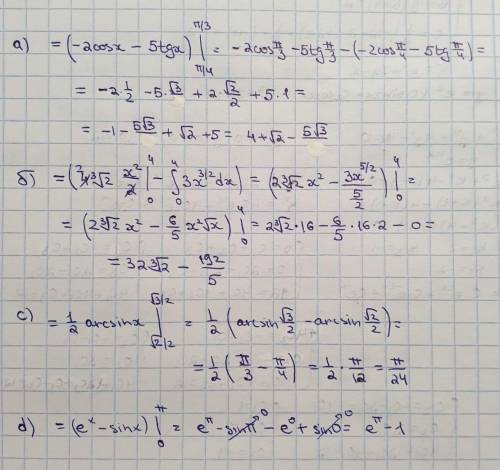 a) = (-2cosx - 5tgx) |_{π/4}^{π/3} = -2cos π/3 - 5tg π/3 - (-2cos π/4 - 5tg π/4) =
= -2·1/2 - 5·√3 + 2·√2/2 + 5·1 =
= -1 - 5√3 + √2 + 5 = 4+√2 - 5√3
б) = (4∛2 x²/2 |_0^4 - ∫_0^4 3x^{3/2}dx) = (2∛2 x² - 3x^{5/2}/(5/2)) |_0^4 =
= (2∛2 x² - 6/5 x²√x) |_0^4 = 2∛2·16 - 6/5·16·2 - 0 =
= 32∛2 - 192/5
c) = 1/2 arcsinx |_{√2/2}^{√3/2} = 1/2 (arcsin √3/2 - arcsin √2/2) =
= 1/2 (π/3 - π/4) = 1/2 · π/12 = π/24
d) = (e^x - sinx) |_0^π = e^π - sinπ^{→0} - e^0 + sin0^{→0} = e^π - 1